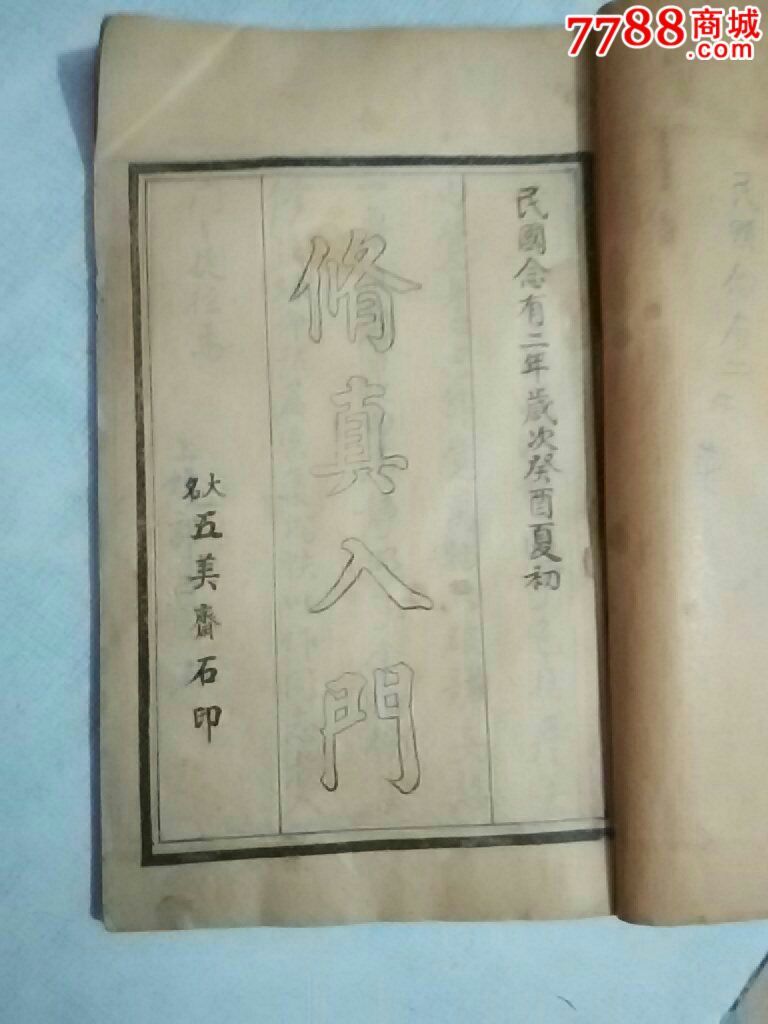 7788商城
.com
民國念有二年歲次癸酉夏初
脩真入門
大名
五美齋石印